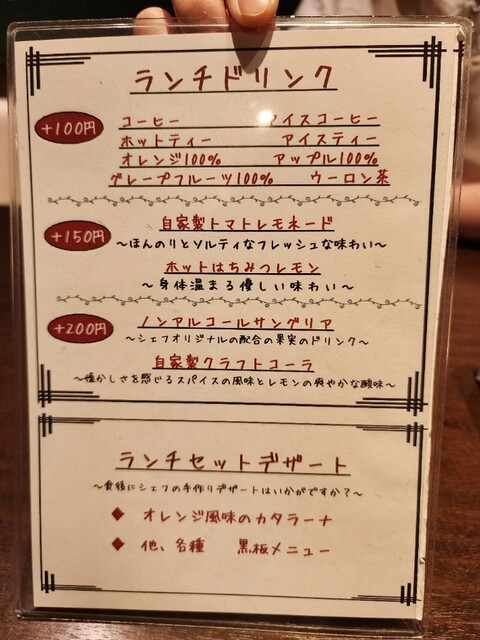 ランチドリンク
+100円
コーヒー アイスコーヒー
ホットティー アイスティー
オレンジ100% アップル100%
グレープフルーツ100% ウーロン茶
+150円
自家製トマトレモネード
～ほんのりとソルティなフレッシュな味わい～
ホットはちみつレモン
～身体温まる優しい味わい～
+200円
ノンアルコールサングリア
～シェフオリジナルの配合の果実のドリンク～
自家製クラフトコーラ
～懐かしさを感じるスパイスの風味とレモンの爽やかな酸味～
ランチセットデザート
～食後にシェフの手作りデザートはいかがですか？～
◆ オレンジ風味のカタラーナ
◆ 他、各種 黒板メニュー